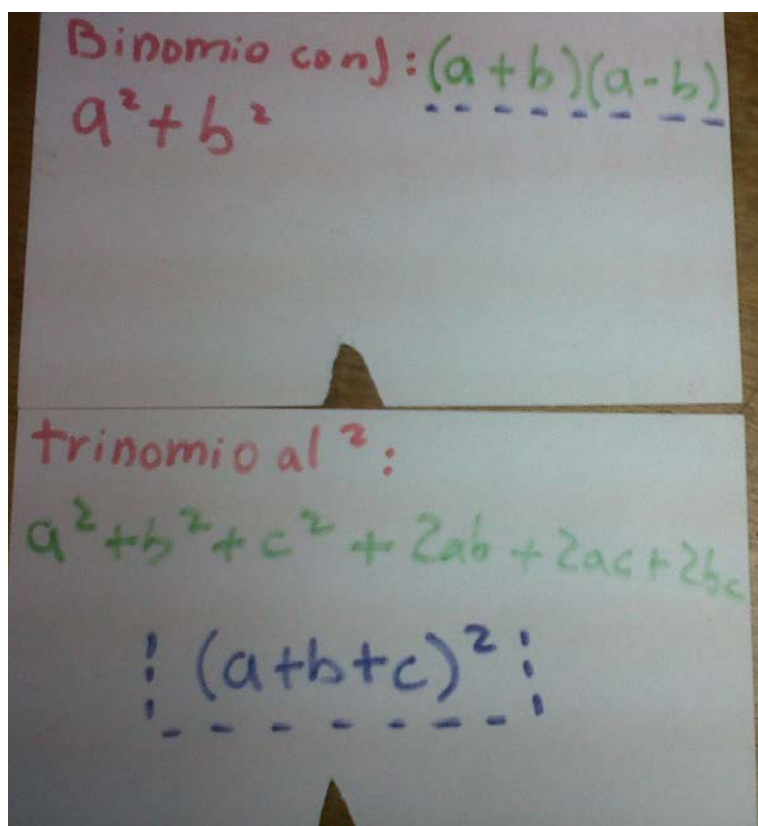 Binomio conj: (a+b)(a-b)
a²+b²
trinomio al ²:
a²+b²+c²+2ab+2ac+2bc
(a+b+c)²